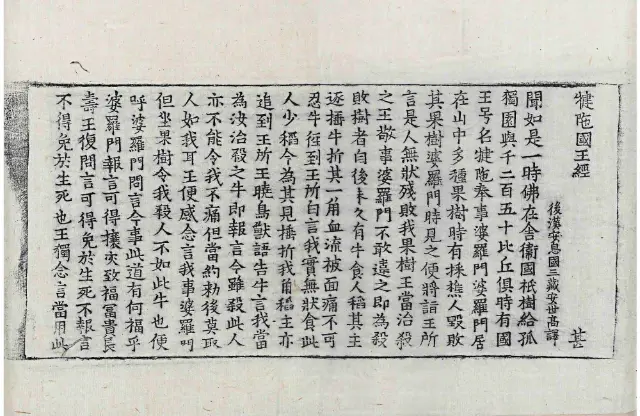 犍陁國王經
後漢安息國三藏安世高譯 甚
聞如是一時佛在舍衛國祇樹給孤
獨園與千二百五十比丘俱時有國
王号名犍陁奉事婆羅門婆羅門居
在山中多種果樹時有採樵人毀敗
其果樹婆羅門時見之便將詣王所
言是人無狀殘敗我果樹王當治殺
之王敬事婆羅門不敢違之即為殺
敗樹者自後未久有牛食人稻其主
逐捶牛折其一角血流被面痛不可
忍牛徑到王所白言我實無狀食此
人少稻今為其見捶折我角稻主亦
追到王所王曉鳥獸語告牛言我當
為汝治殺之牛即報言今雖殺此人
亦不能令我不痛但當約勑後莫取
人如我耳王便感念言我事婆羅門
但坐果樹令我殺人不如此牛也便
呼婆羅門問言今事此道有何福乎
婆羅門報言可得攘灾致福富貴長
壽王復問言可得免於生死不報言
不得免於生死也王獨念言當用此